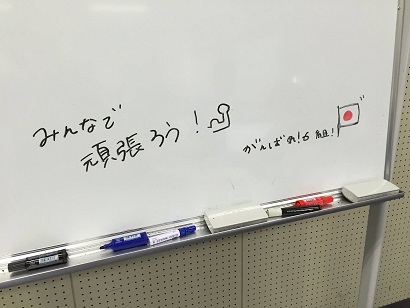 みんなで
頑張ろう!
がんばれ!6組!